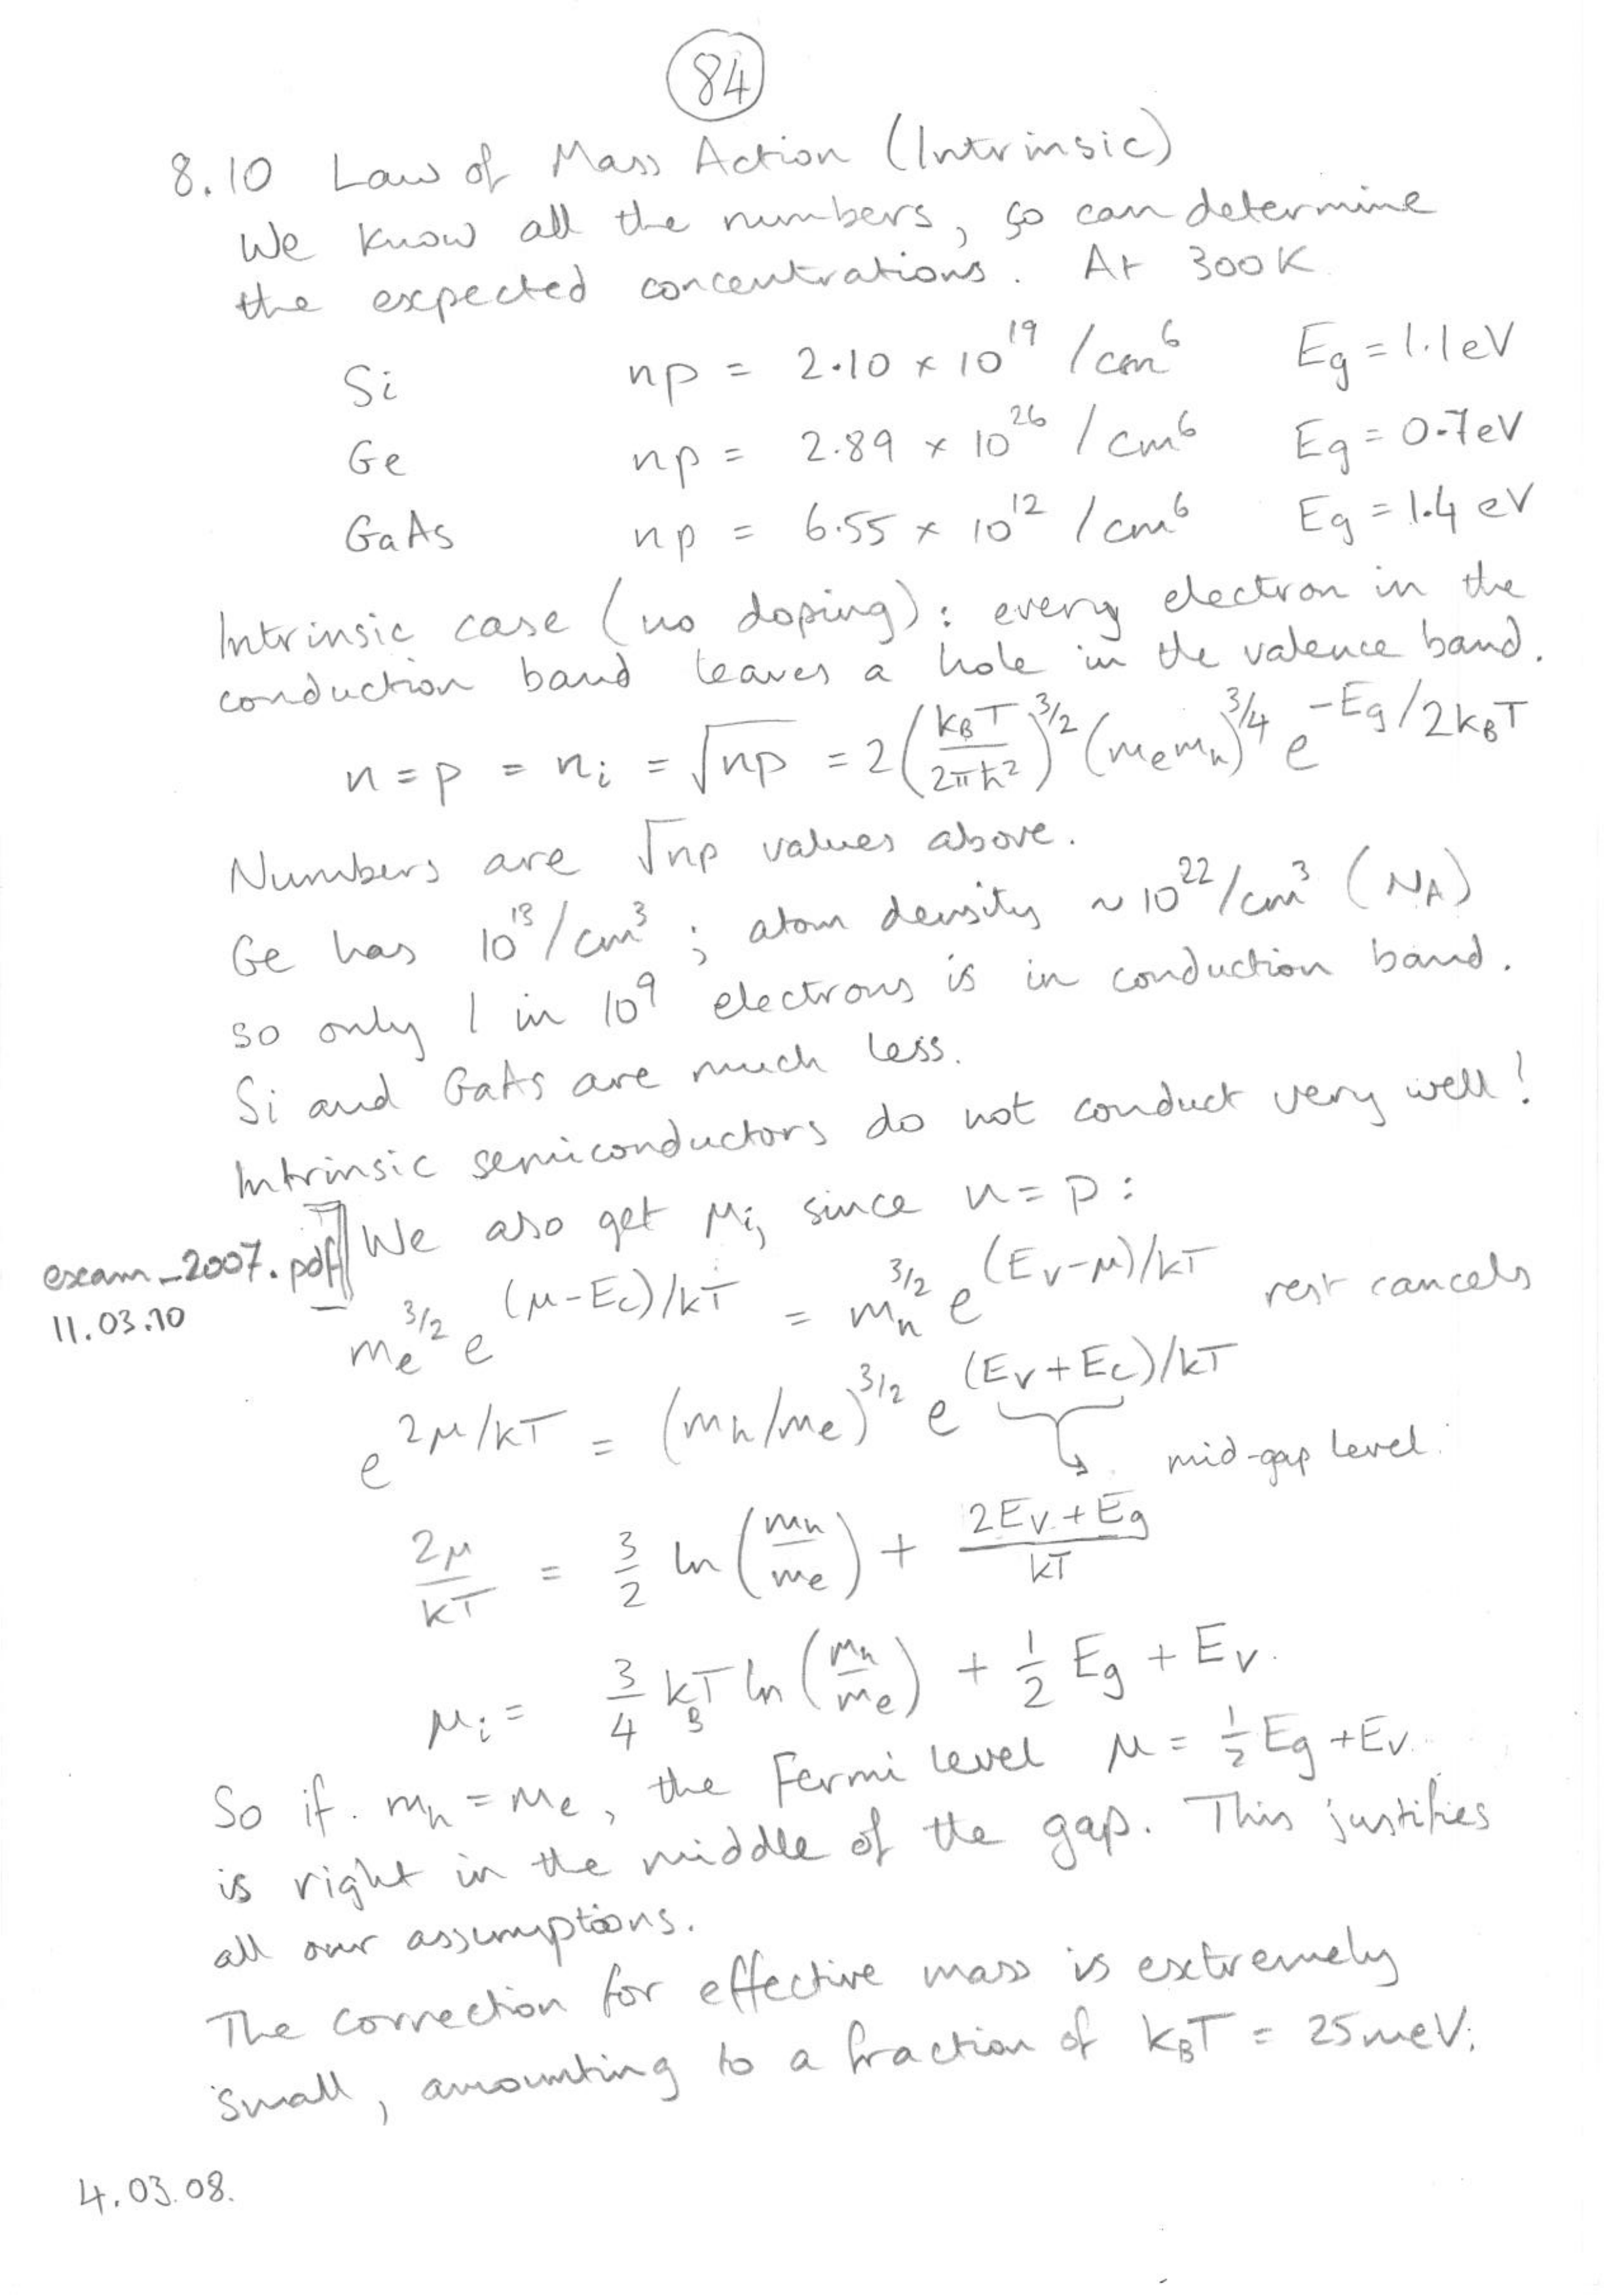 84
8.10 Law of Mass Action (Intrinsic)
We know all the numbers, so can determine
the expected concentrations. At 300K
Si np = 2.10 × 10^19 /cm^6 Eg = 1.1eV
Ge np = 2.89 × 10^26 /cm^6 Eg = 0.7eV
GaAs np = 6.55 × 10^12 /cm^6 Eg = 1.4 eV
Intrinsic case (no doping): every electron in the
conduction band leaves a hole in the valence band.
n = p = n_i = √np = 2 (k_B T / 2πħ²)^3/2 (m_e m_h)^3/4 e^-Eg/2k_BT
Numbers are √np values above.
Ge has 10^13/cm^3 ; atom density ~ 10^22/cm^3 (N_A)
so only 1 in 10^9 electrons is in conduction band.
Si and GaAs are much less.
Intrinsic semiconductors do not conduct very well!
We also get μ_i, since n = p :
exam_2007.pdf
11.03.10
m_e^3/2 e^(μ-E_c)/kT = m_h^3/2 e^(E_v-μ)/kT rest cancels
e^2μ/kT = (m_h/m_e)^3/2 e^(E_v+E_c)/kT
mid-gap level.
2μ/kT = 3/2 ln (m_h/m_e) + (2E_v + E_g)/kT
μ_i = 3/4 k_BT ln (m_h/m_e) + 1/2 E_g + E_v.
So if m_h = m_e, the Fermi level μ = 1/2 Eg + E_v
is right in the middle of the gap. This justifies
all our assumptions.
The correction for effective mass is extremely
small, amounting to a fraction of k_BT = 25meV.
4.03.08.